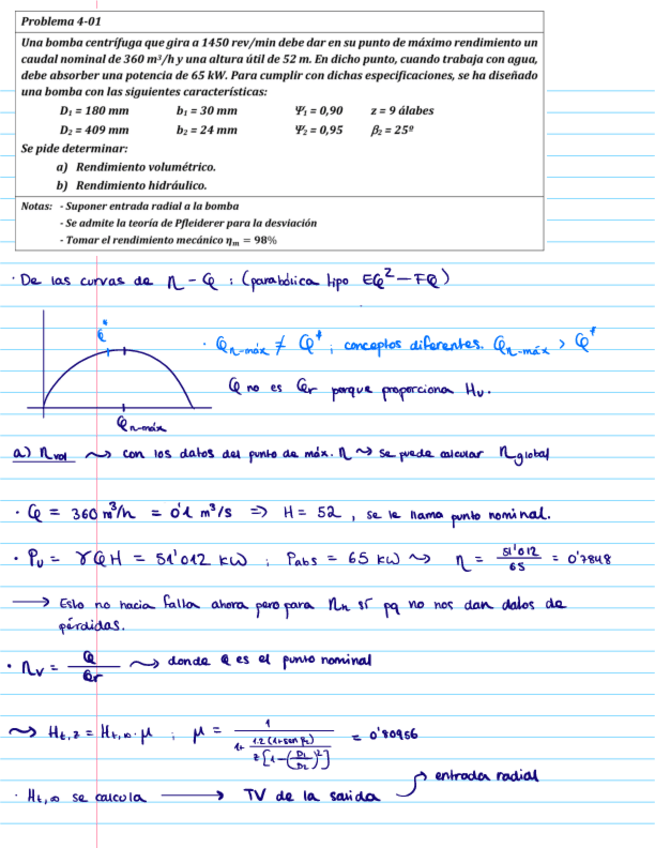 Problema 4-01
Una bomba centrífuga que gira a 1450 rev/min debe dar en su punto de máximo rendimiento un
caudal nominal de 360 m³/h y una altura útil de 52 m. En dicho punto, cuando trabaja con agua,
debe absorber una potencia de 65 kW. Para cumplir con dichas especificaciones, se ha diseñado
una bomba con las siguientes características:
D₁ = 180 mm b₁ = 30 mm Ψ₁ = 0,90 z = 9 álabes
D₂ = 409 mm b₂ = 24 mm Ψ₂ = 0,95 β₂ = 25º
Se pide determinar:
a) Rendimiento volumétrico.
b) Rendimiento hidráulico.
Notas: - Suponer entrada radial a la bomba
- Se admite la teoría de Pfleiderer para la desviación
- Tomar el rendimiento mecánico ηₘ = 98%
· De las curvas de η - Q : (parabólica tipo EQ² - FQ)
Q*
· Qη-máx ≠ Q* ; conceptos diferentes. Qη-máx > Q*
Q no es Qr porque proporciona Hu.
Qη-máx
a) ηvol ⤳ con los datos del punto de máx. η ⤳ se puede calcular ηglobal
· Q = 360 m³/h = 0'1 m³/s ⇒ H = 52 , se le llama punto nominal.
· Pu = γQH = 51'012 kW ; Pabs = 65 kW ⤳ η = 51'012/65 = 0'7848
→ Esto no hacía falta ahora pero para ηh sí pq no nos dan datos de
pérdidas.
· ηv = Q/Qr ⤳ donde Q es el punto nominal
⤳ Ht,z = Ht,∞ · μ ; μ = 1/(1+ 1.2(1+sen β₂)/(z[1-(D₁/D₂)²])) = 0'80956
entrada radial
· Ht,∞ se calcula → TV de la salida